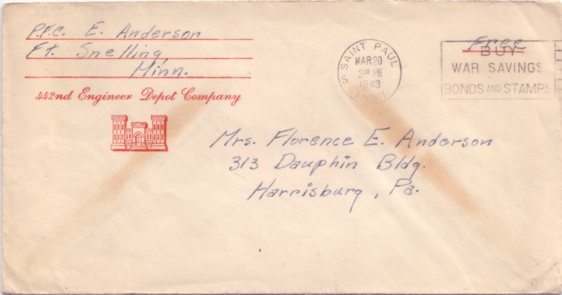 Pfc. E. Anderson
Ft. Snelling
Minn.
442nd Engineer Depot Company
SAINT PAUL
MAR 20
PM
1943
MINN.
Free
BUY
WAR SAVINGS
BONDS AND STAMPS
Mrs. Florence E. Anderson
313 Dauphin Bldg.
Harrisburg, Pa.